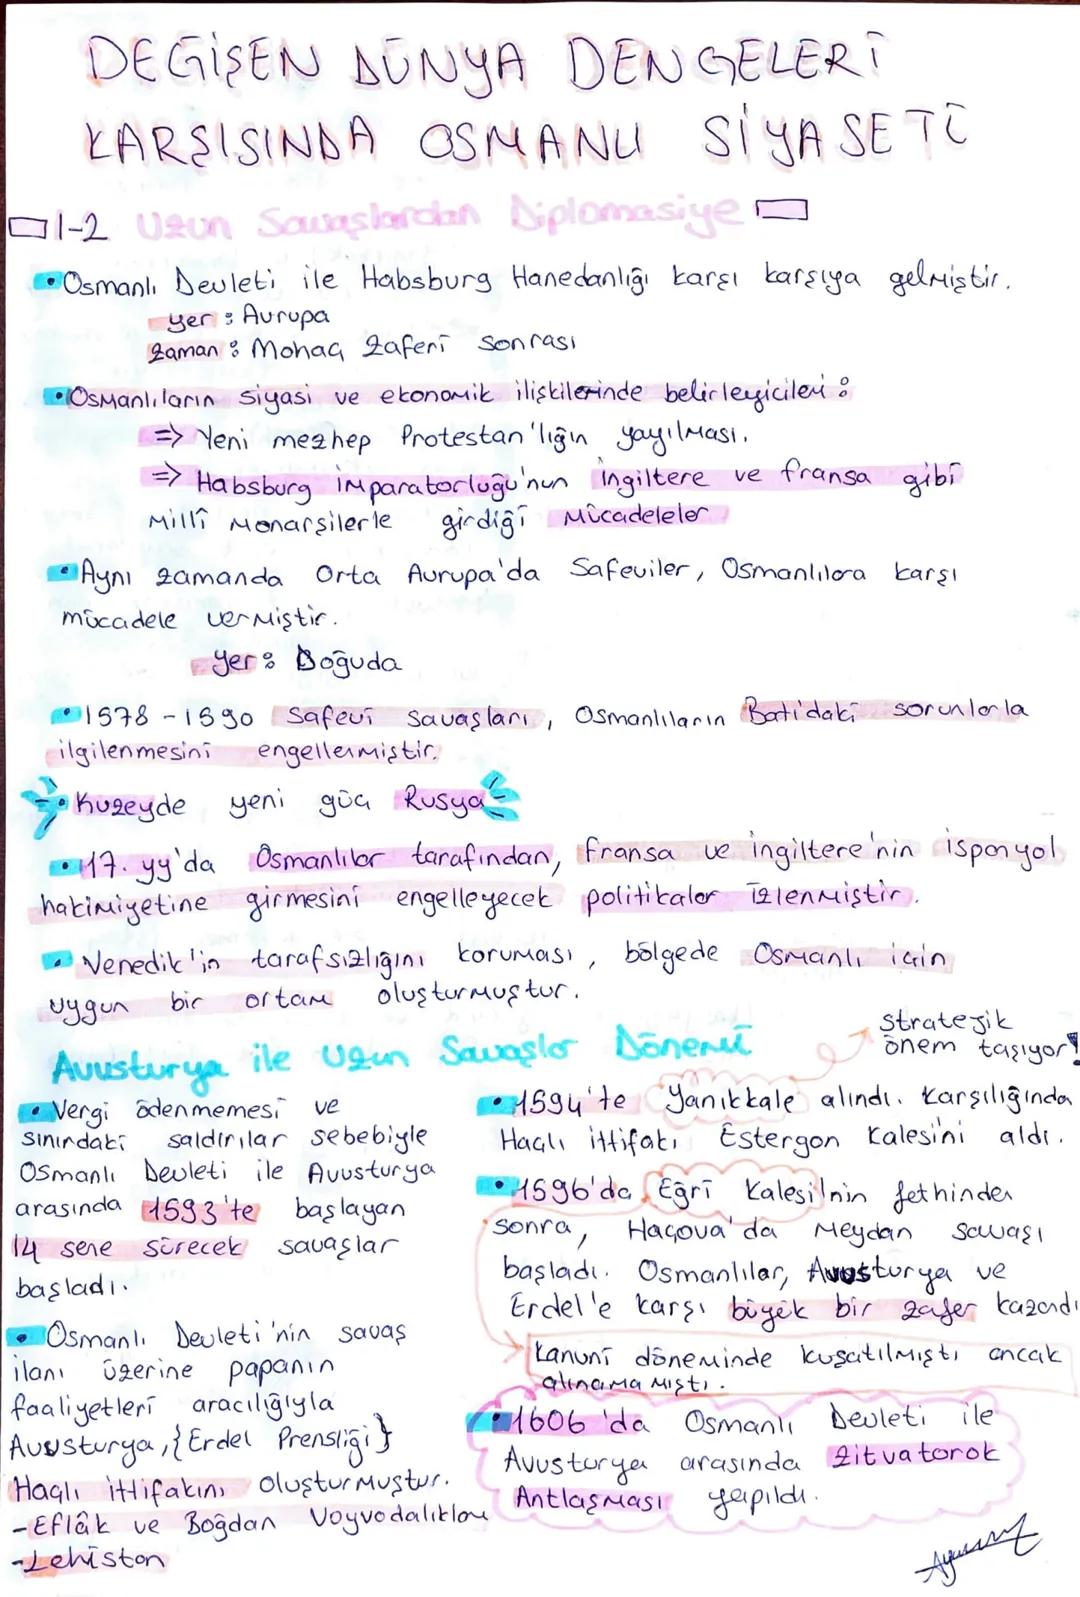 DEĞİŞEN DÜNYA DENGELERİ
KARŞISINDA OSMANLI SİYASETİ
1-2 Uzun Savaşlardan Diplomasiye
• Osmanlı Devleti ile Habsburg Hanedanlığı karşı karşıya gelmiştir.
yer : Avrupa
zaman : Mohaç Zaferi sonrası
• Osmanlıların siyasi ve ekonomik ilişkilerinde belirleyicileri :
=> Yeni mezhep Protestan'lığın yayılması.
=> Habsburg İmparatorluğu'nun İngiltere ve fransa gibi
Millî Monarşilerle girdiği Mücadeleler
• Aynı zamanda Orta Avrupa'da Safeviler, Osmanlılara karşı
mücadele vermiştir.
yer : Doğuda
• 1578 - 1590 Safevi Savaşları, Osmanlıların Batı'daki sorunlarla
ilgilenmesini engellemiştir.
• Kuzeyde yeni güç Rusya
• 17. yy'da Osmanlılar tarafından, Fransa ve İngiltere'nin İspanyol
hakimiyetine girmesini engelleyecek politikalar izlenmiştir.
• Venedik'in tarafsızlığını koruması, bölgede Osmanlı için
uygun bir ortam oluşturmuştur.
Avusturya ile Uzun Savaşlar Dönemi
• Vergi ödenmemesi ve
sınırdaki saldırılar sebebiyle
Osmanlı Devleti ile Avusturya
arasında 1593'te başlayan
14 sene sürecek savaşlar
başladı.
• Osmanlı Devleti'nin savaş
ilanı üzerine papanın
faaliyetleri aracılığıyla
Avusturya, {Erdel Prensliği}
Haçlı ittifakını oluşturmuştur.
- Eflâk ve Boğdan Voyvodalıkları
- Lehistan
stratejik
önem taşıyor!
• 1594'te Yanıkkale alındı. Karşılığında
Haçlı ittifakı Estergon Kalesini aldı.
• 1596'da Eğri Kalesi'nin fethinden
sonra, Haçova'da Meydan Savaşı
başladı. Osmanlılar, Avusturya ve
Erdel'e karşı büyük bir zafer kazandı
Kanuni döneminde kuşatılmıştı ancak
alınamamıştı.
• 1606'da Osmanlı Devleti ile
Avusturya arasında Zitvatorok
Antlaşması yapıldı.